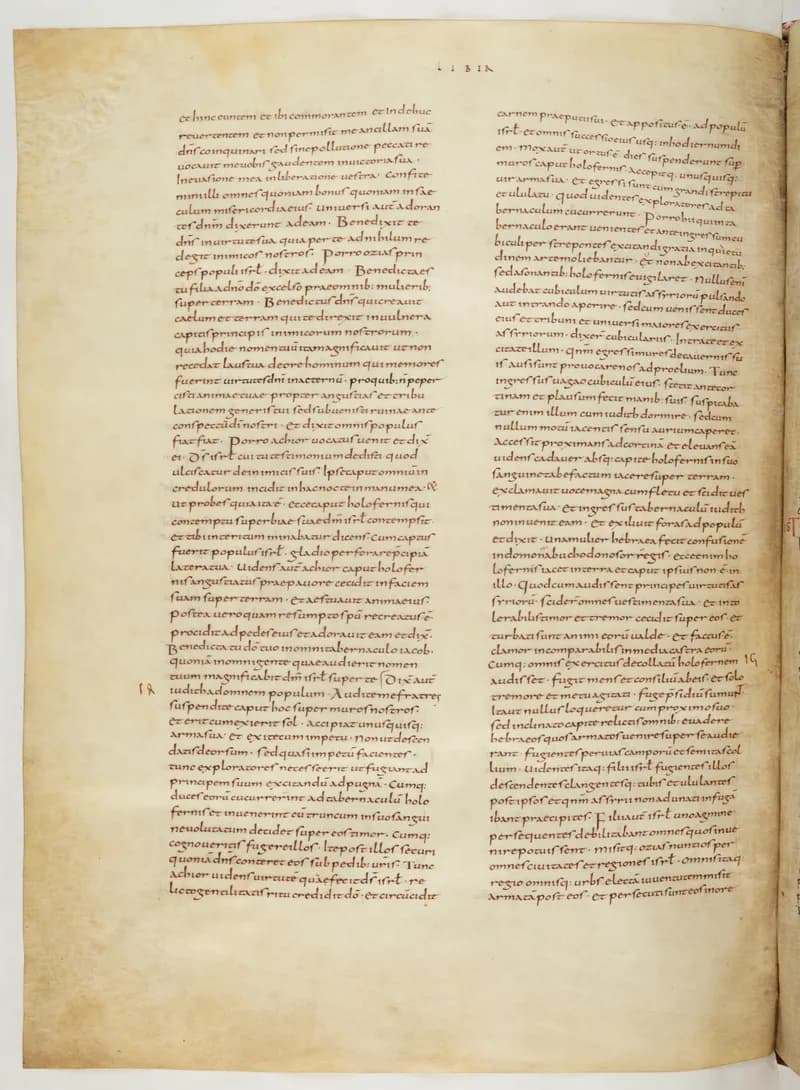 LIBER
et hinc euntem et ibi commorantem et inde huc
revertentem et non permisit me ancillam suā
dn̄s coinquinari sed sine pollutione peccati re
vocavit me vobis gaudentem in victoria sua ·
In evasione mea in liberatione vestra · Confite
mini illi omnes quoniam bonus quoniam in sae
culum misericordia eius · Universi aut̄ adoran
tes dn̄m dixerunt ad eam · Benedixit te
dn̄s in virtute sua quia per te ad nihilum re
degit inimicos nostros · Porro ozias prin
ceps populi isrl̄ · dixit ad eam · Benedicta es
tu filia a dn̄o dō excelso prae omnib; mulierib;
super terram · Benedictus dn̄s qui creavit
caelum et terram qui te direxit in vulnera
capitis principis inimicorum nostrorum ·
quia hodie nomen tuū ita magnificavit ut non
recedat laus tua de ore hominum qui memores
fuerint virtutis dn̄i in aeternū · pro quib; n̄ peper
cisti animae tuae propter angustias et tribu
lationem generis tui sed subvenisti ruinae ante
conspectū dī nostri · Et dixit omnis populus
fiat fiat · Porro achior vocatus venit et dix̄
ei · Dī isrl̄ cui tu testimonium dedisti quod
ulciscatur de inimicis suis · Ipse caput omniū in
credulorum incidit in hac nocte in manu mea · &
ut probes quia ita ē · ecce caput holofernis qui
contemptu superbiae suae dm̄ isrl̄ contempsit ·
Et tibi interitum minabatur dicens · Cum captus
fuerit populus isrl̄ · gladio perforare p̄cipiā
latera tua · Videns aut̄ achior caput holofer
nis angustiatus prae pavore cecidit in faciem
suam super terram · Et aestuavit anima eius ·
Postea vero quam resumpto spū recreatus ē ·
procidit ad pedes eius et adoravit eam et dix̄ ·
Benedicta tu dō tuo in omni tabernaculo iacob ·
quoniā in omni gente quae audierit nomen
tuum magnificabit dm̄ isrl̄ super te · Dix̄ aut̄
iudith ad omnem populum · Audite me fratres
suspendite caput hoc super muros nostros ·
et erit cum exierit sol · Accipiat unusquisq;
arma sua · Et exite cum impetu · Non ut descen
datis deorsum · sed quasi impetū facientes ·
tunc exploratores necesse erit ut fugiant ad
principem suum excitandū ad pugnā · Cumq;
duces eorū cucurrerint ad tabernaculū holo
fernis et invenerint eū truncum in suo sangui
ne volutatum decidet super eos timor · Cumq;
cognoveritis fugere illos · Ite post illos securi
quoniā dn̄s conteret eos sub pedib; vr̄is · Tunc
Achior videns virtutē quā fecit dī isrl̄ · re
licto gentilitatis ritu credidit dō · et circūcidit
carnem praeputii sui · et appositus ē · ad populū
isrl̄ · et omnis successio eius usq; in hodiernum di
em · Mox aut̄ ut ortus ē dies suspenderunt sup̄
muros caput holofernis accepitq; unusquisq;
vir arma sua · Et egressi sunt cum grandi strepitu
et ululatu · quod videntes exploratores ad ta
bernaculum cucurrerunt · Porro hi qui in ta
bernaculo erant venientes et ante ingressum cu
biculi perstrepentes excitandi gratia inquietu
dinem arte moliebantur · Ut non ab excitantib;
sed a sonantib; holofernis evigilaret · Nullus eni
audebat cubiculum virtutis assyriorū pulsando
aut intrando aperire · sed cum venissent duces
eius et tribuni et universi maiores exercitus
assyriorum · dixer̄ cubiculariis · Intrate et ex
citate illum · qn̄m egressi mures de cavernis su
is ausi sunt provocare nos ad proelium · Tunc
ingressus vagao cubiculū eius · stetit ante cor
tinam et plausum fecit manib; suis · suspicaba
tur enim illum cum iudith dormire · sed cum
nullum motū iacentis sensu aurium caperet ·
Accessit proximans ad cortinā et elevans eā
videns cadaver absq; capite holofernis in suo
sanguine tabefactum iacere super terram ·
exclamavit voce magna cum fletu et scidit ves
timenta sua · Et ingressus tabernaculū iudith
non invenit eam · Et exilivit foras ad populū
et dixit · Una mulier hebraea fecit confusionē
in domo nabuchodonosor regis · ecce enim ho
lofernis iacet in terra et caput ipsius non ē in
illo · Quod cum audissent principes virtutis as
syriorū · scider̄ omnes vestimenta sua · Et into
lerabilis timor et tremor cecidit super eos et
turbati sunt animi eorū valde · et factus ē ·
clamor incomparabilis in media castra eorū ·
Cumq; omnis exercitus decollatū holofernem
audisset · fugit mens et consiliū ab eis · et solo
tremore et metu agitati · fugę p̄sidiū sumunt
Ita ut nullus loqueretur cum proximo suo ·
sed inclinato capite relictis omnib; evadere
hebraeos quos armatos venire super se audie
rant · fugientes per vias camporū et semitas col
lium · Videntes itaq; filii isrl̄ fugientes illos
descendentes clangentesq; tubis et ululantes
post ipsos et qn̄m assyrii non adunati in fugā
ibant praecipites · Filii aut̄ isrl̄ uno agmine
persequentes debilitabant omnes quos inve
nire potuissent · misitq; ozias nuntios per
omnes civitates et regiones isrl̄ · Omnis itaq;
regio omnisq; urbs electā iuventutem misit
armatā post eos · et persecuti sunt eos in ore